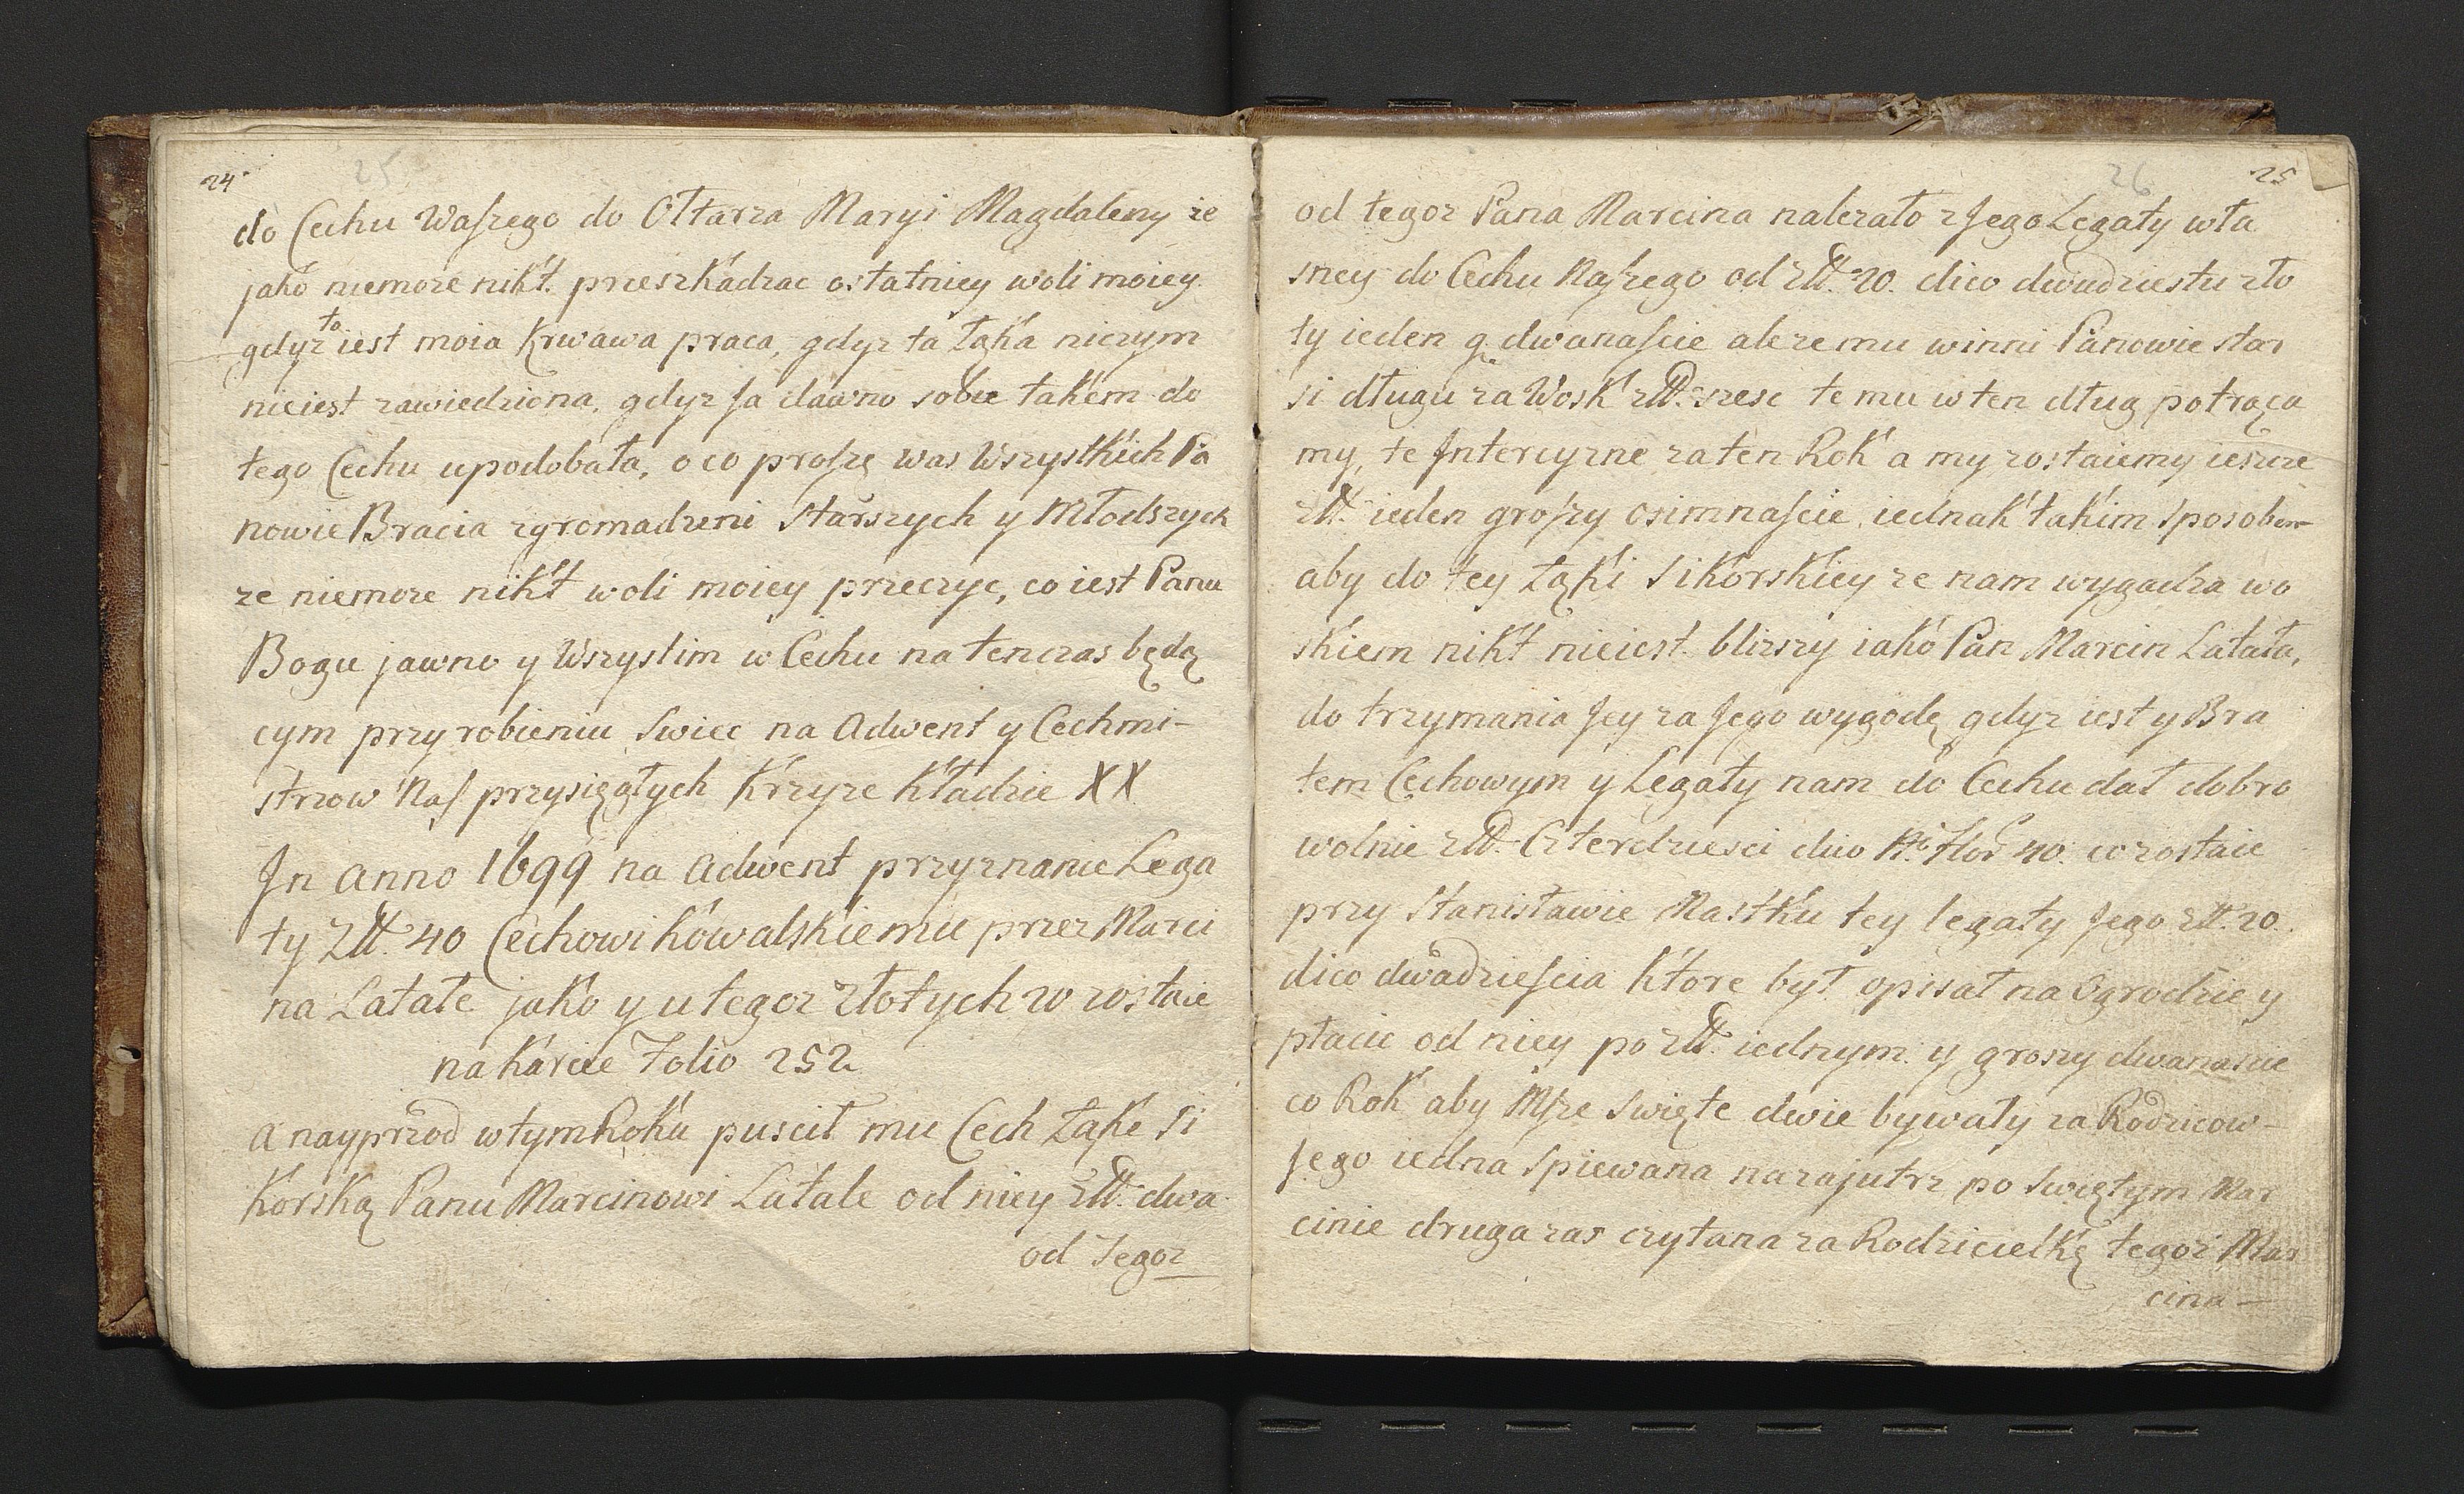 24
25
do Cechu Waszego do Ołtarza Maryi Magdaleny ze
jako niemoze nikt. przeszkadzac ostatniey woli moiey
gdyz to iest moia Krwawa praca, gdyz ta Łąka niczym
nieiest zawiedziona, gdyz Ja dawno sobie takem do
tego Cechu upodobała, o co proszę was Wszystkich Pa
nowie Bracia zgromadzeni Starszych y Młodszych
ze niemoze nikt woli moiey przeczyc, co iest Panu
Bogu jawno y Wszystim w Cechu na tenczas będą
cym przy robieniu Swiec na Adwent y Cechmi-
strzow Nas przysięgłych Krzyze Kładzie XX
Jn Anno 1699 na Adwent przyznanie Lega
ty Złł. 40 Cechowi Kowalskiemu przez Marci
na Latałe jako y u tegoz Złotych 20 zostaie
na Karcie Folio 252
A nayprzod w tym Roku puscił mu Cech Łąke Si
Korską Panu Marcinowi Latale od niey Złł. dwa
od Tegoz
26
25
od tegoz Pana Marcina nalezało z Jego Legaty wła
sney do Cechu Naszego od Złł. 20. dico dwudziestu zło
ty ieden g. dwanascie ale ze mu winni Panowie star
si długu za Wosk złł. szesc te mu w ten dług potrąca
my, te Jntercyzne za ten Rok a my zostaiemy ieszcze
złł. ieden groszy osimnascie, iednak takim Sposobem
aby do tey Łąki Sikorskiey ze nam wygadza wo
skiem nikt nieiest blizszy iako Pan Marcin Latała,
do trzymania Jey za Jego wygodę gdyz iest y Bra
tem Cechowym y Legaty nam do Cechu dał dobro
wolnie złł. Czterdziesci dico Flor 40. co zostaie
przy Stanisławie Nastku tey legaty Jego złł. 20.
dico dwadziescia ktore był opisał na Ogrodzie y
płacic od niey po złł. iednym. y groszy dwanascie
co Rok aby Msze Swięte dwie bywały za Rodzicow-
Jego iedna Spiewana nazajutrz po Swiętym Mar
cinie druga zas czytana za Rodzicielkę tegoz Mar
cina-